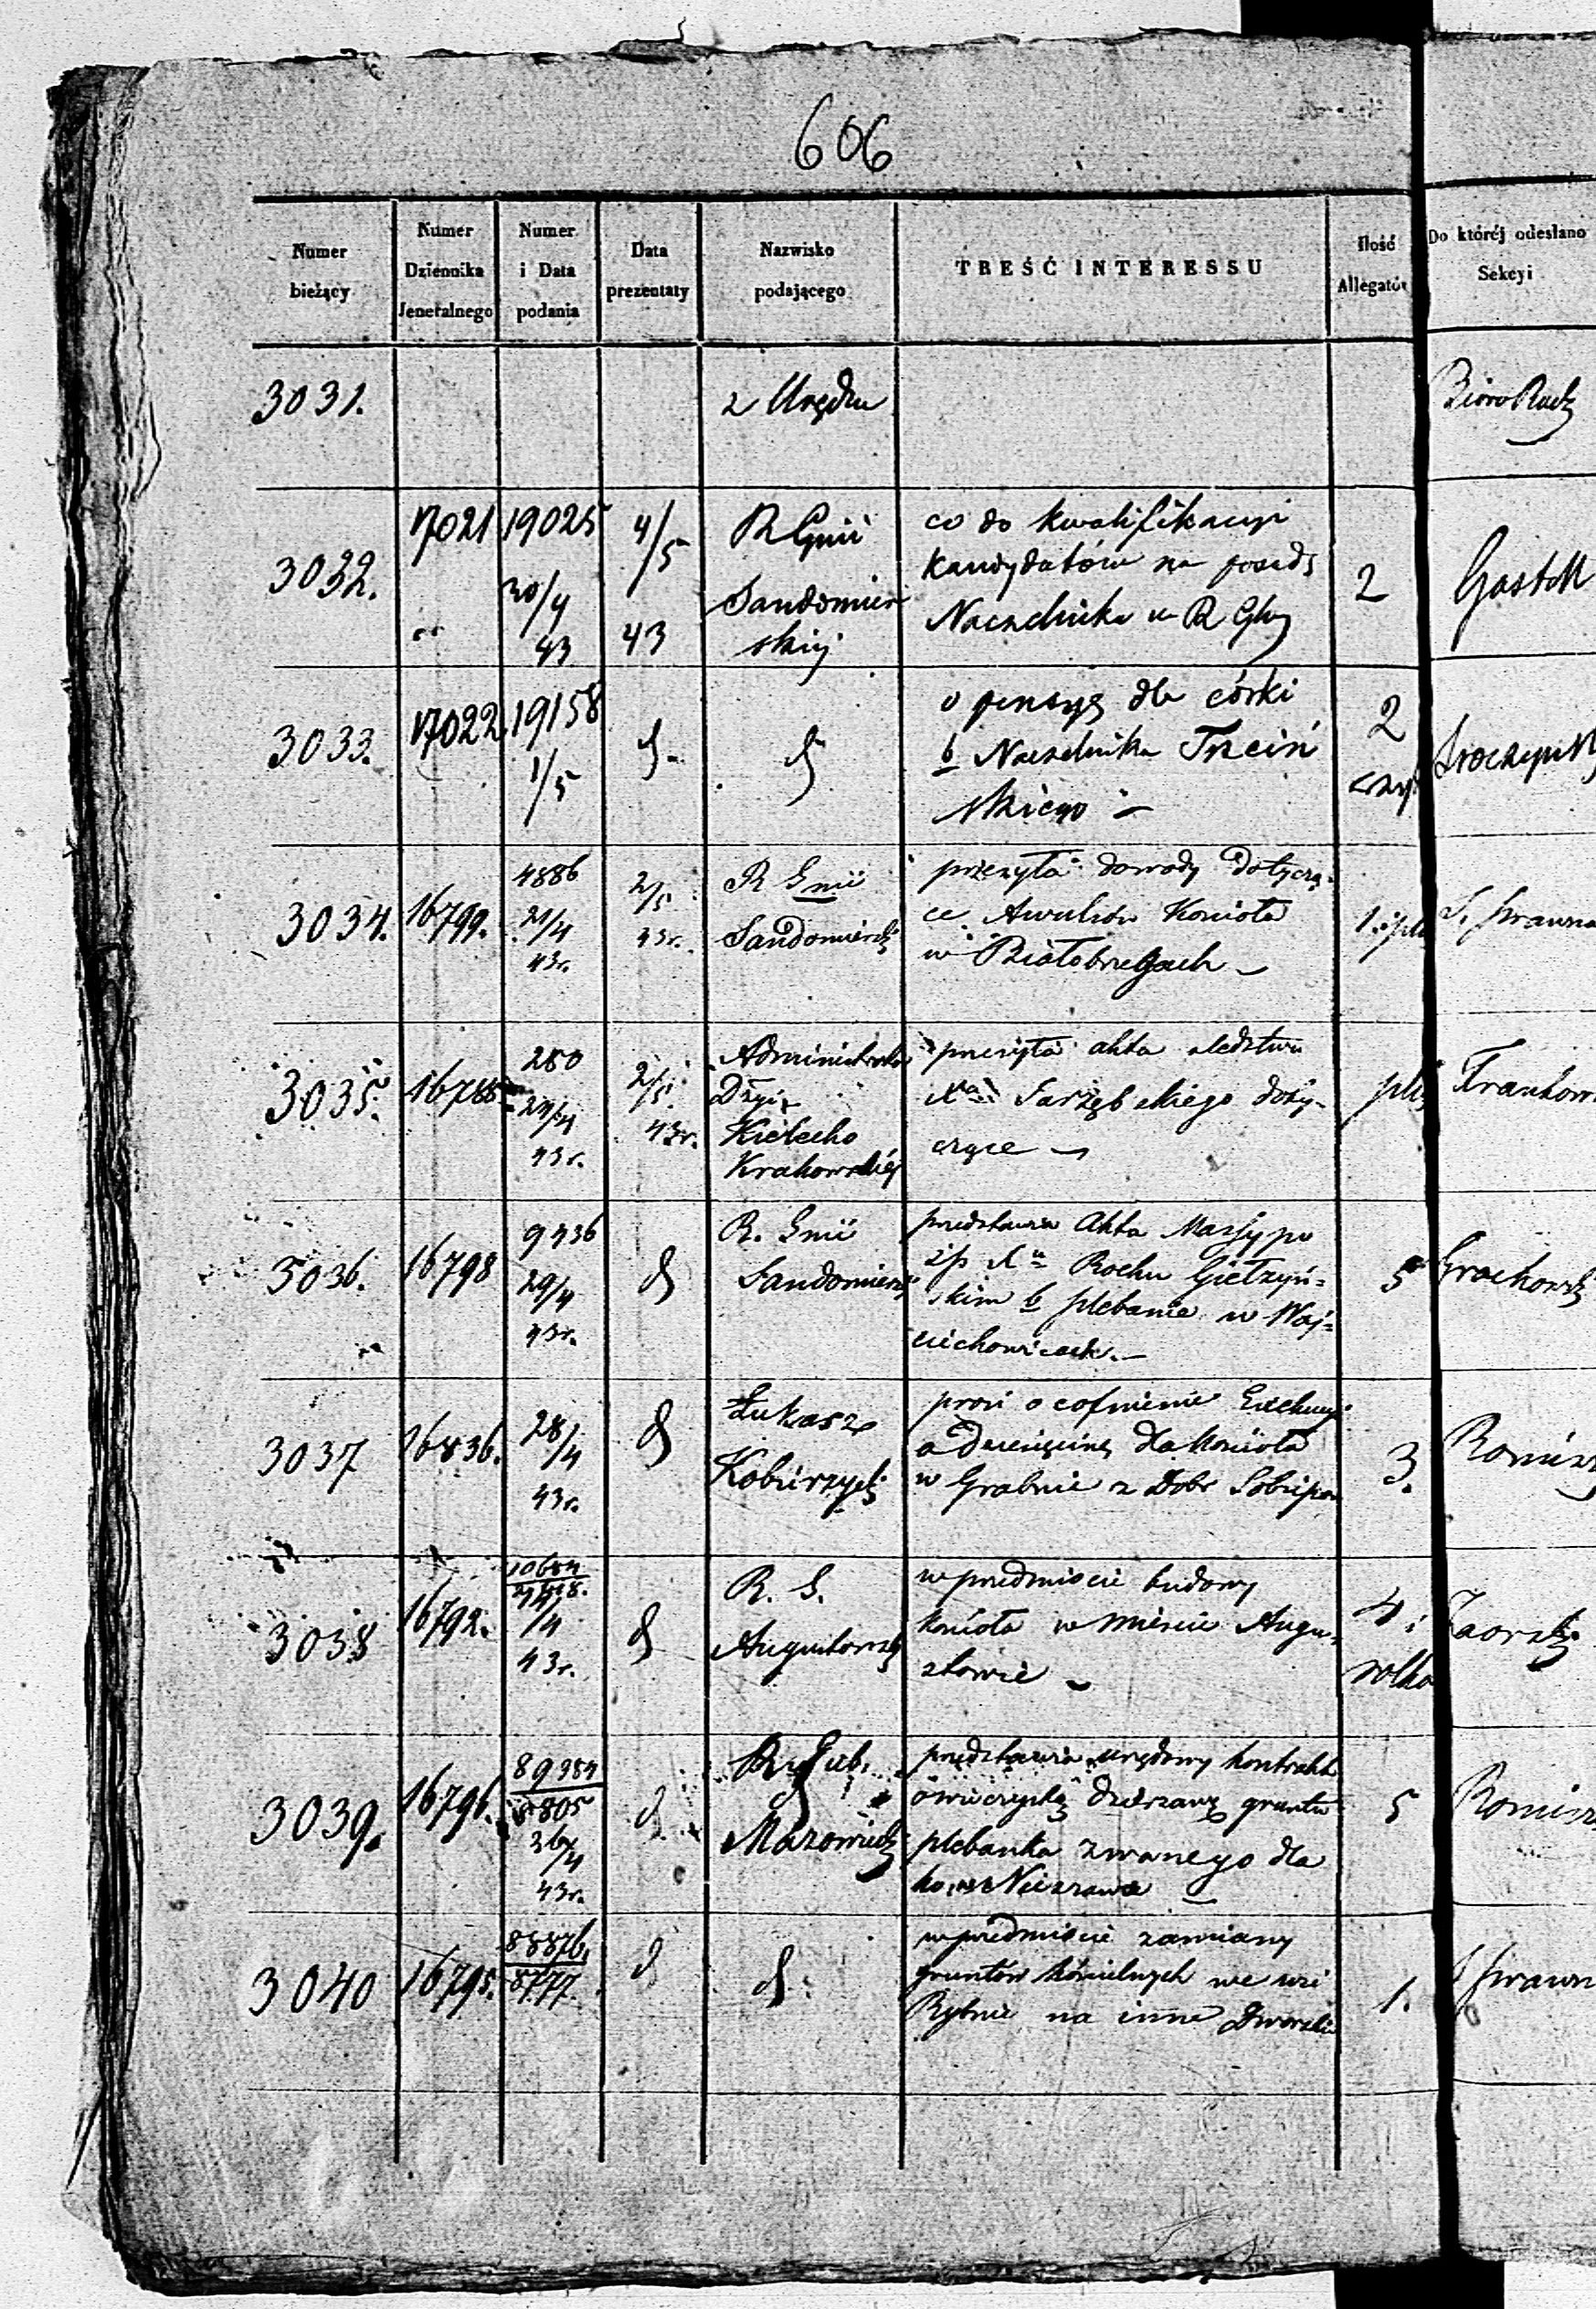 606
Numer bieżący
Numer Dziennika Jeneralnego
Numer i Data podania
Data prezentaty
Nazwisko podającego
TREŚĆ INTERESSU
Ilość Allegatów
Do któréj odesłano Sekcyi
3031.
z Urzędu
3032.
17021
19025
30/4
43
4/5
43
R Gnii
Sandomier
skiej
co do kwalifikacyi
kandydatów na posadę
Naczelnika w R
2
3033.
17022
19158
1/5
d
d
o pensyę dla córki
b Naczelnika Trciń
skiego
2
3034.
16799.
4886
21/4
43r.
2/5
43r.
R Gnii
przesyła dowody dotyczą-
ce Kościoła
w Białobrzegach
1.
3035.
16788
280
29/4
43r.
2/5
43r.
Dyi
Kielecko
Krakowskiéj
przesyła akta śledztwa
Xa Jarzębskiego doty-
czące
Frankow
3036.
16798
9436
29/4
43r.
d
R. Gnii
przedstawia Akta Massy po
ś.p. Xu Rochu Giełzyń-
skim b plebanie w Woj-
ciechowicach.
5
Grochowsk
3037
16836.
28/4
43r.
d
Łukasz
Kobierzycki
prosi o cofnienie Exekucyi
o dziesięcinę dla kościoła
w Grabnie z Dobr
3.
3038
16792.
/4
43r.
d
R. G.
Augustowsk
w przedmiocie budowy
kościoła w mieście Augu-
stowie
4 i
rolka
Zaorski
3039.
16796.
89984
26/4
43r.
d
R Gub.
Mazowieck
przedstawia urzędowy kontrakt
o wieczystą dzierzawę gruntu
plebanka zwanego dla
Nieszawa
5
3040
16795.
88876.
8777.
d
d.
w przedmiocie zamiany
gruntów kościelnych we wsi
Rybnie na inne Dworskie
1.